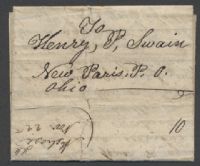 To
Henry, P, Swain
New Paris, P. O.
Ohio
10